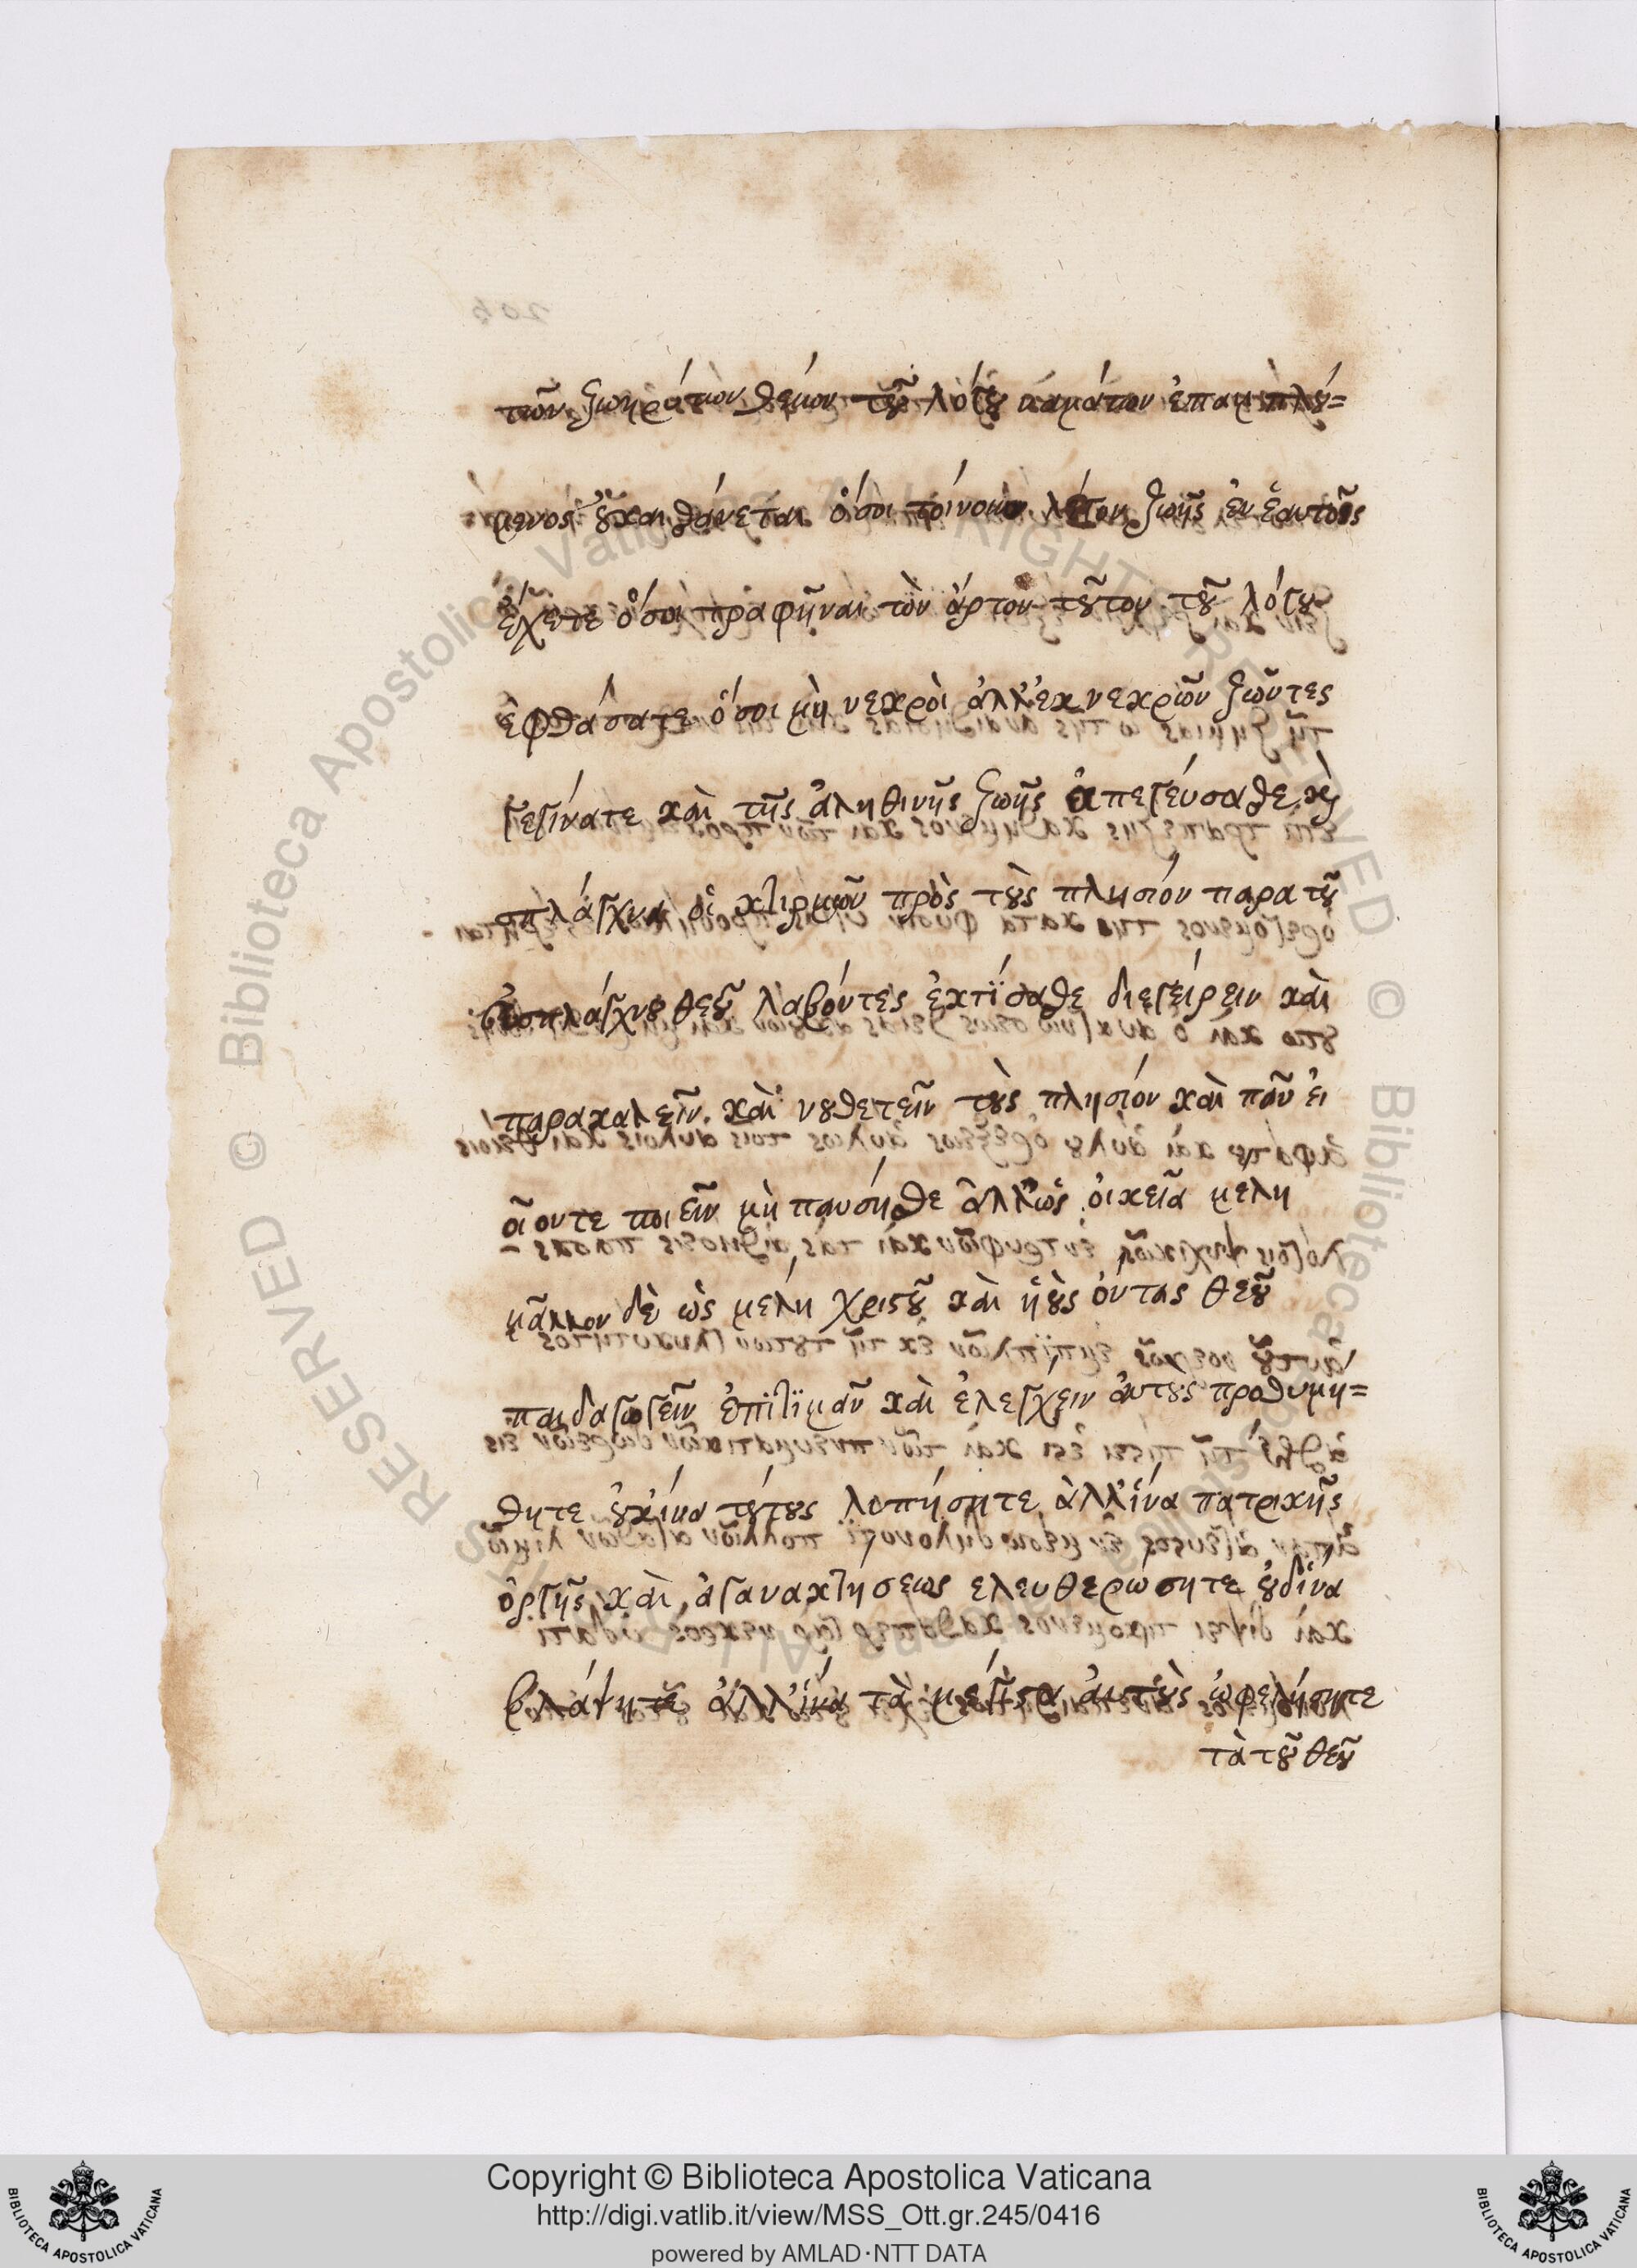 τῶν ζωηράτων θείων τοῦ λόγου ναμάτων
μενος οὐκ αἰσθάνεται ὅσοι τοίνυν λόγον ζωῆς ἐν ἑαυτοῖς
ἔχετε ὅσοι τραφῆναι τὸν ἄρτον τοῦτον τοῦ λόγου
ἐφθάσατε ὅσοι μὴ νεκροὶ ἀλλ' ἐκ νεκρῶν ζῶντες
γεγόνατε καὶ τῆς ἀληθινῆς ζωῆς ἀπεγεύσασθε καὶ
σπλάγχνα οἰκτιρμῶν πρὸς τοὺς πλησίον παρα τοῦ
εὐσπλάγχνου θεοῦ λαβόντες ἐκτίσασθε διεγείρειν καὶ
παρακαλεῖν καὶ νουθετεῖν τοὺς πλησίον καὶ πᾶν εἰ
οἷον τε ποιεῖν μὴ παύσησθε ἀλλ' ὡς οἰκεῖα μελη
μᾶλλον δὲ ὡς μέλη χριστοῦ καὶ ἡοὺς ὄντας θεοῦ
παιδαγωγεῖν ἐπιτιμᾶν καὶ ἐλέγχειν ἀυτοὺς προθυμή=
θητε οὐχ ἵνα τούτους λυπήσητε ἀλλ' ἵνα πατρικῆς
ὀργῆς καὶ ἀγανακτήσεως ελευθερώσητε οὐδ' ἵνα
βλάψητε ἀλλ' ἵνα τὰ μέγιστα ἀυτοὺς ὠφελήσητε
τὰ τοῦ θεοῦ
Copyright © Biblioteca Apostolica Vaticana
http://digi.vatlib.it/view/MSS_Ott.gr.245/0416
powered by AMLAD·NTT DATA
BIBLIOTECA APOSTOLICA VATICANA
BIBLIOTECA APOSTOLICA VATICANA